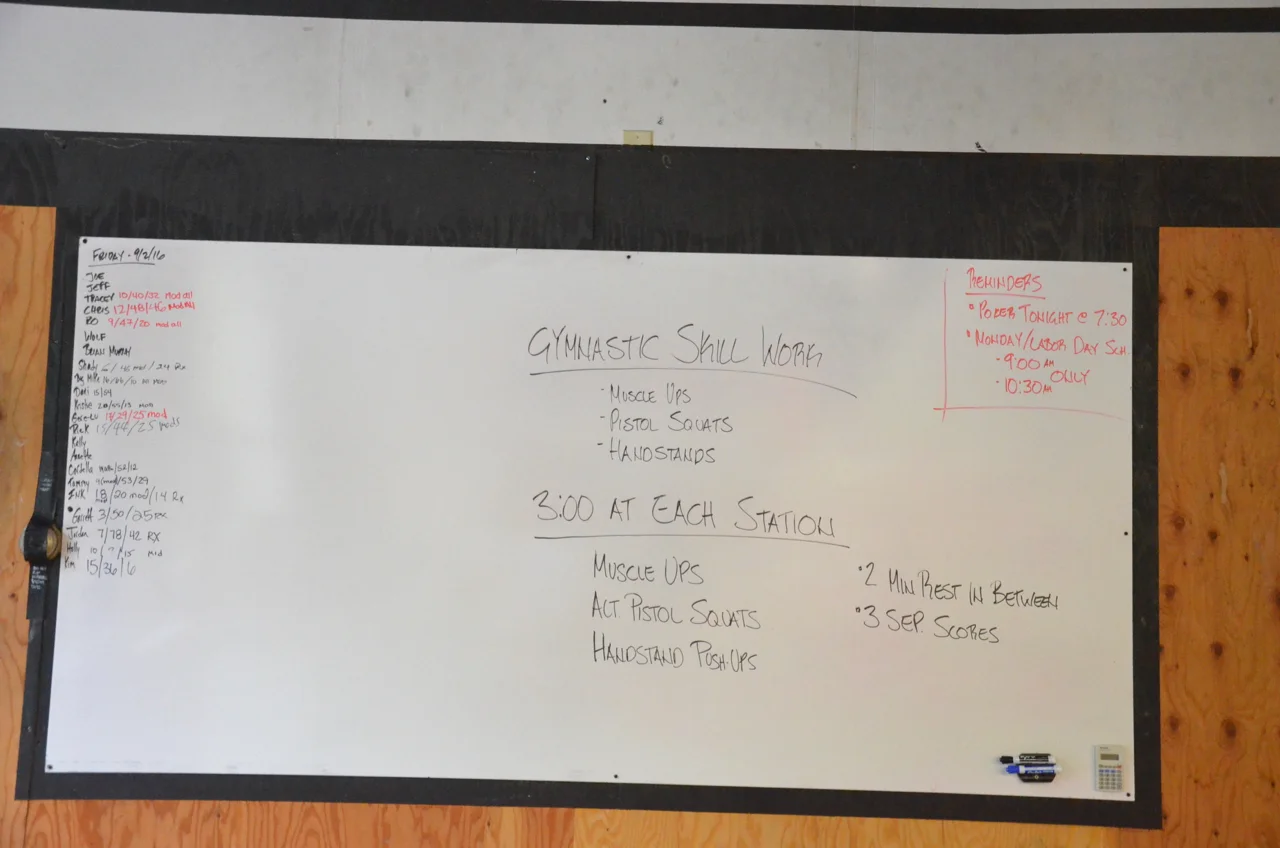 FRIDAY - 9/2/16
JOE
JEFF
TRACEY 10/40/32 mod all
CHRIS 12/48/46 Mod All
BO 9/47/20 mod all
WOLF
BRIAN MURPHY
mod / 24 Rx
Dori 15/59
18/29/25 mod
Rick 15/44/25 mods
Kelly
Costella /52/12
Tommy /53/29
18/20 mod/14 Rx
Garrett 3/50/25 RX
Jordan 7/78/42 RX
Holly 10/ /15 mod
Kim 15/36/6
GYMNASTIC SKILL WORK
- MUSCLE UPS
- PISTOL SQUATS
- HANDSTANDS
3:00 AT EACH STATION
MUSCLE UPS
ALT PISTOL SQUATS
HANDSTAND PUSH-UPS
• 2 MIN REST IN BETWEEN
• 3 SEP. SCORES
REMINDERS
• POKER TONIGHT @ 7:30
• MONDAY/LABOR DAY SCH.
- 9:00 AM
- 10:30 AM ONLY